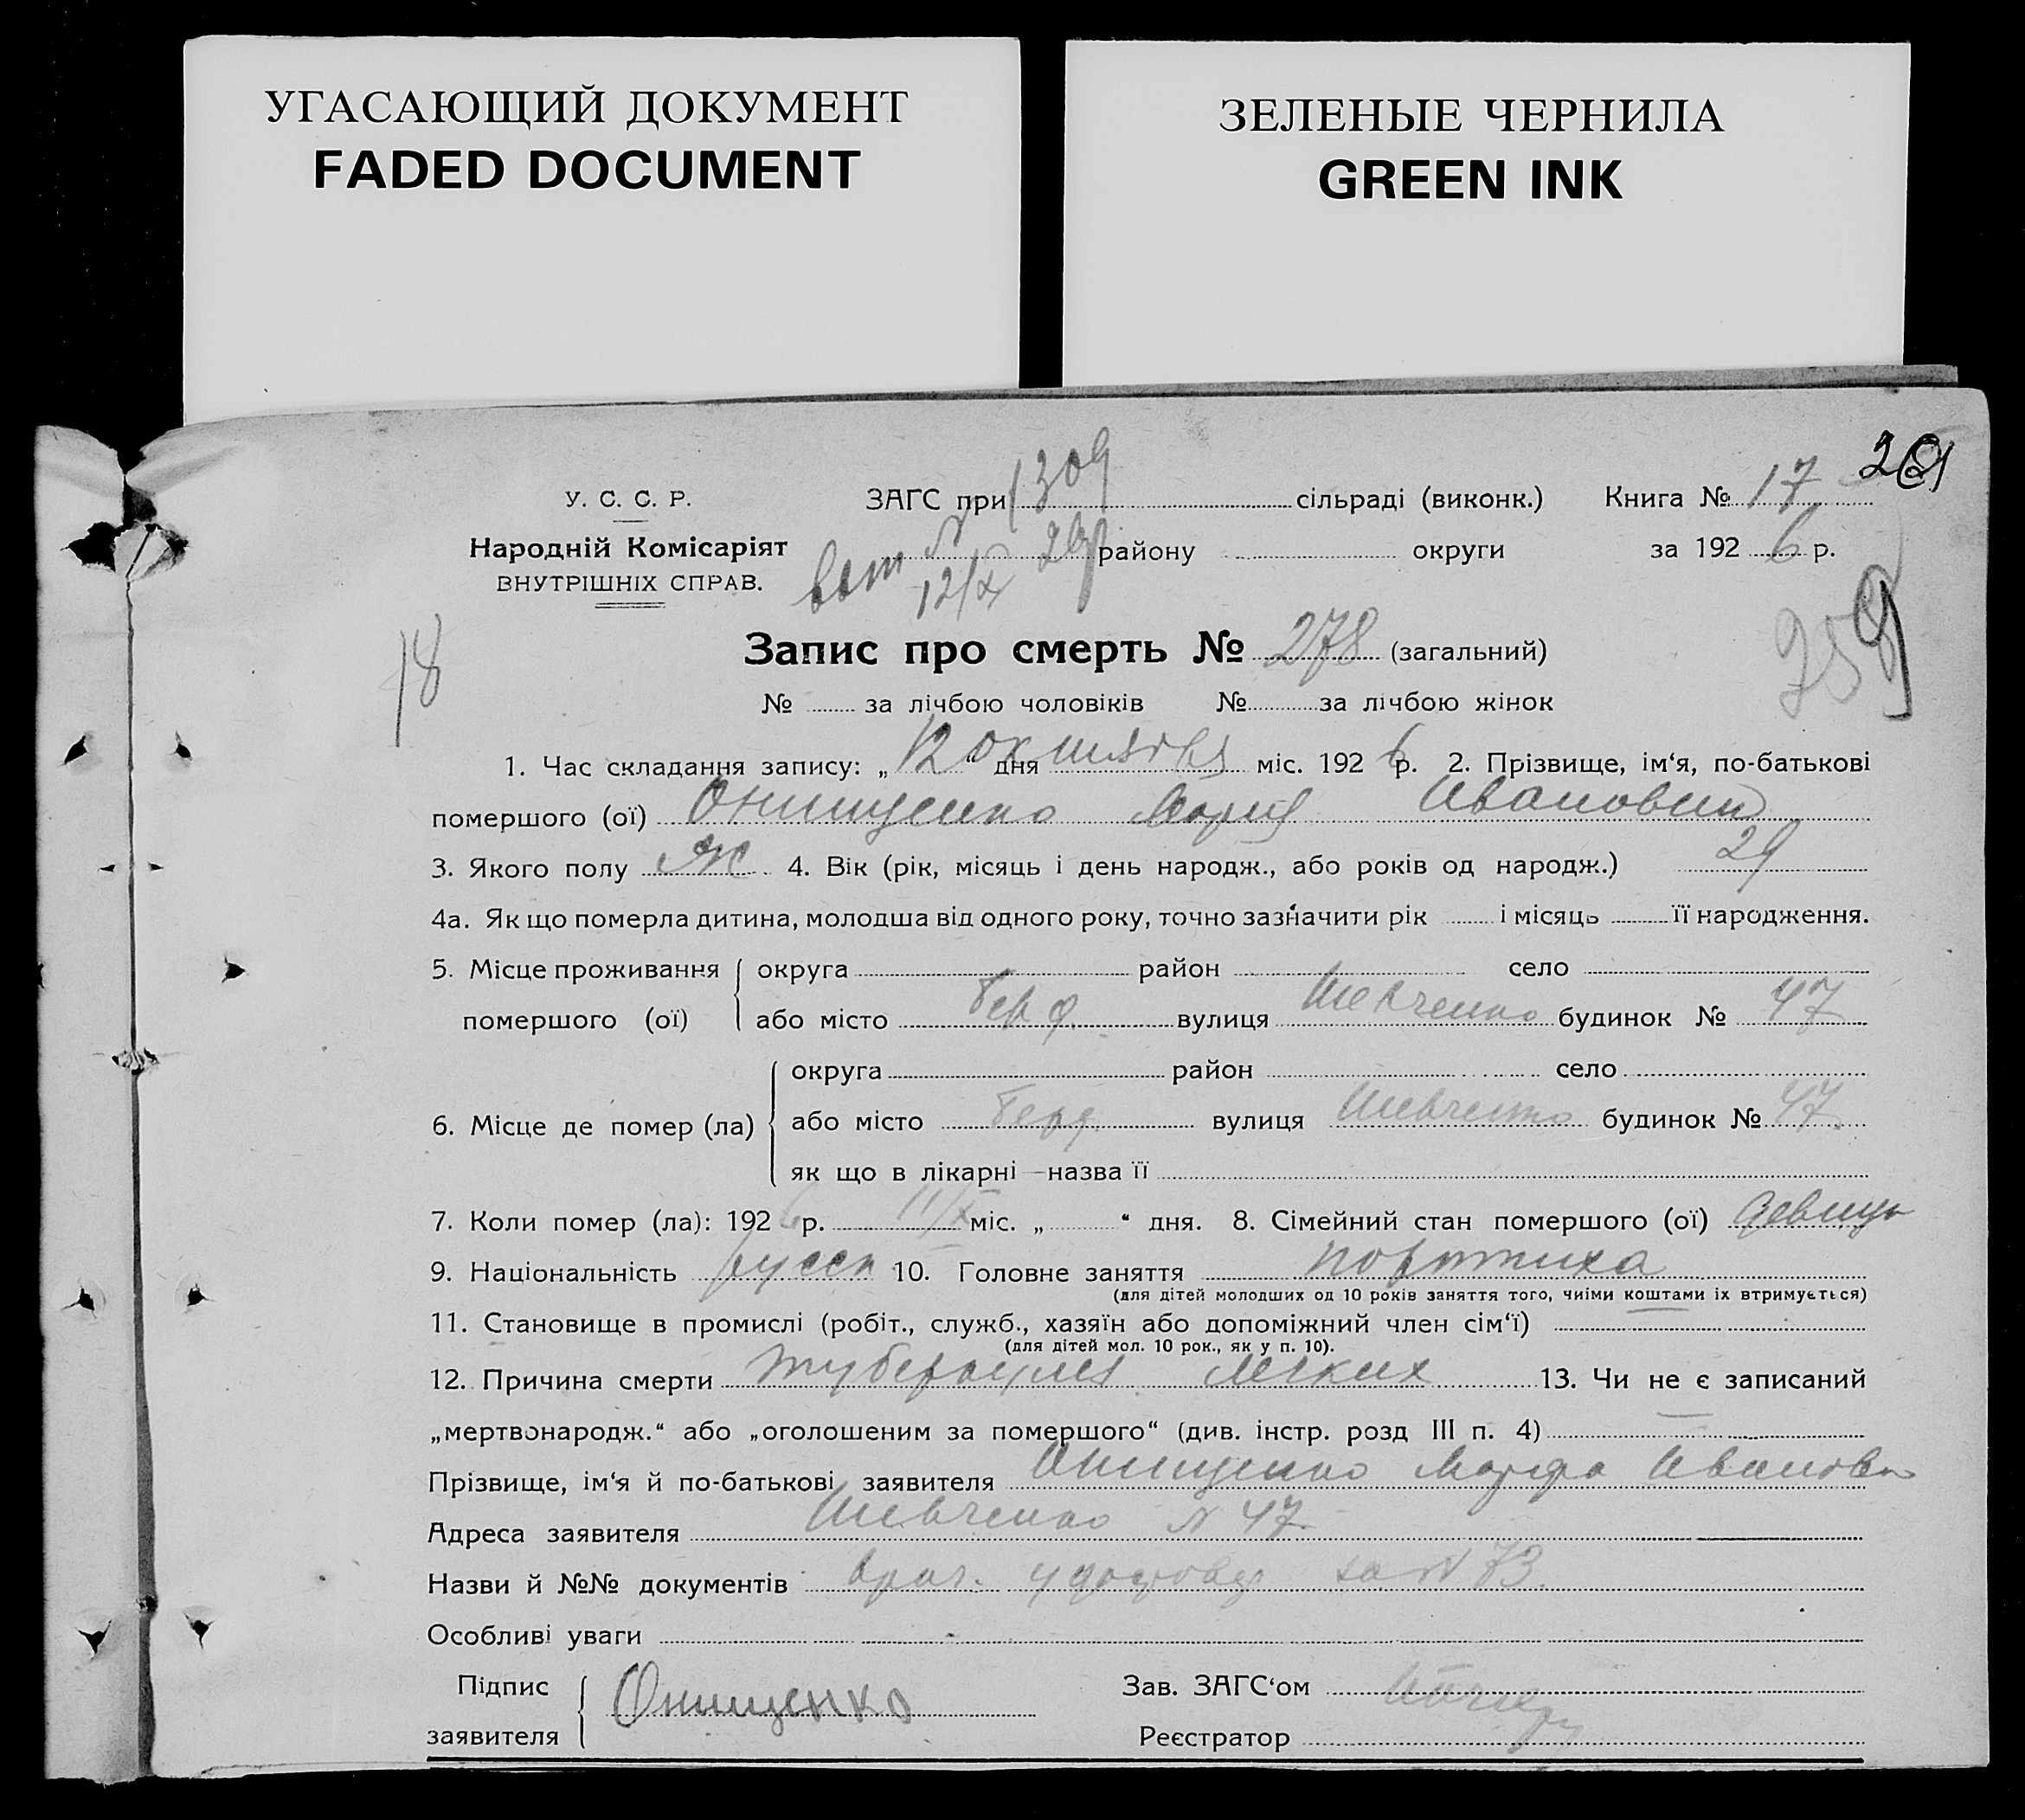 УГАСАЮЩИЙ ДОКУМЕНТ
FADED DOCUMENT
ЗЕЛЕНЫЕ ЧЕРНИЛА
GREEN INK
261
У. С. С. Р. ЗАГС при 1309 сільраді (виконк.) Книга № 17
Народній Комісаріят району округи за 1926 р.
ВНУТРІШНІХ СПРАВ. 12/X
18 Запис про смерть № 278 (загальний) 259
№ за лічбою чоловіків № за лічбою жінок
1. Час складання запису: „12“ дня октября міс. 1926 р. 2. Прізвище, ім‘я, по-батькові
помершого (ої) Онищенко Мария Ивановна
3. Якого полу ж 4. Вік (рік, місяць і день народж., або років од народж.) 29
4а. Як що померла дитина, молодша від одного року, точно зазначити рік і місяць її народження.
5. Місце проживання округа район село
помершого (ої) або місто Берд. вулиця Шевченко будинок № 47
округа район село
6. Місце де помер (ла) або місто Берд. вулиця Шевченко будинок № 47.
як що в лікарні — назва її
7. Коли помер (ла): 1926 р. 11/X міс. „ “ дня. 8. Сімейний стан помершого (ої) девица
9. Національність русск 10. Головне заняття портниха
(для дітей молодших од 10 років заняття того, чиїми коштами їх втримується)
11. Становище в промислі (робіт., служб., хазяїн або допоміжний член сім‘ї)
(для дітей мол. 10 рок., як у п. 10).
12. Причина смерти туберкулез легких 13. Чи не є записаний
„мертвонародж.“ або „оголошеним за помершого“ (див. інстр. розд III п. 4) —
Прізвище, ім‘я й по-батькові заявителя Онищенко Марфа Ивановн
Адреса заявителя Шевченко N 47.
Назви й №№ документів врач. за N 73.
Особливі уваги
Підпис Онищенко Зав. ЗАГС‘ом
заявителя Реєстратор